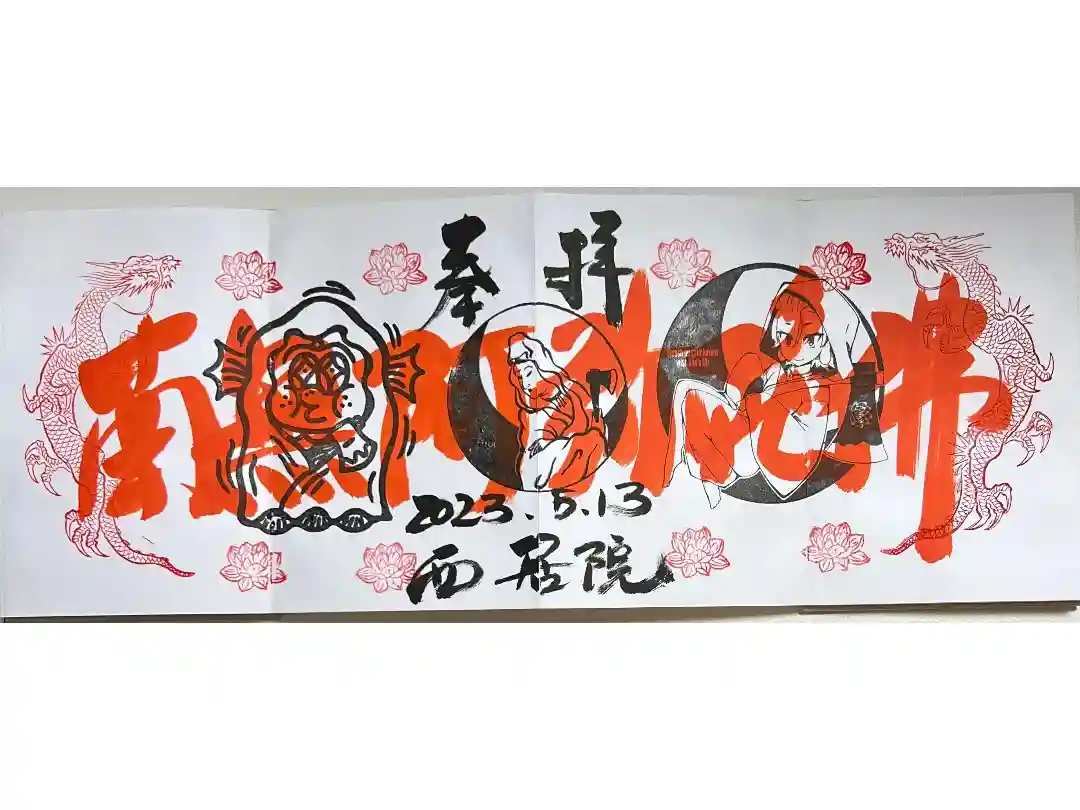 奉拝
南無阿弥陀佛
2023.5.13
西居院